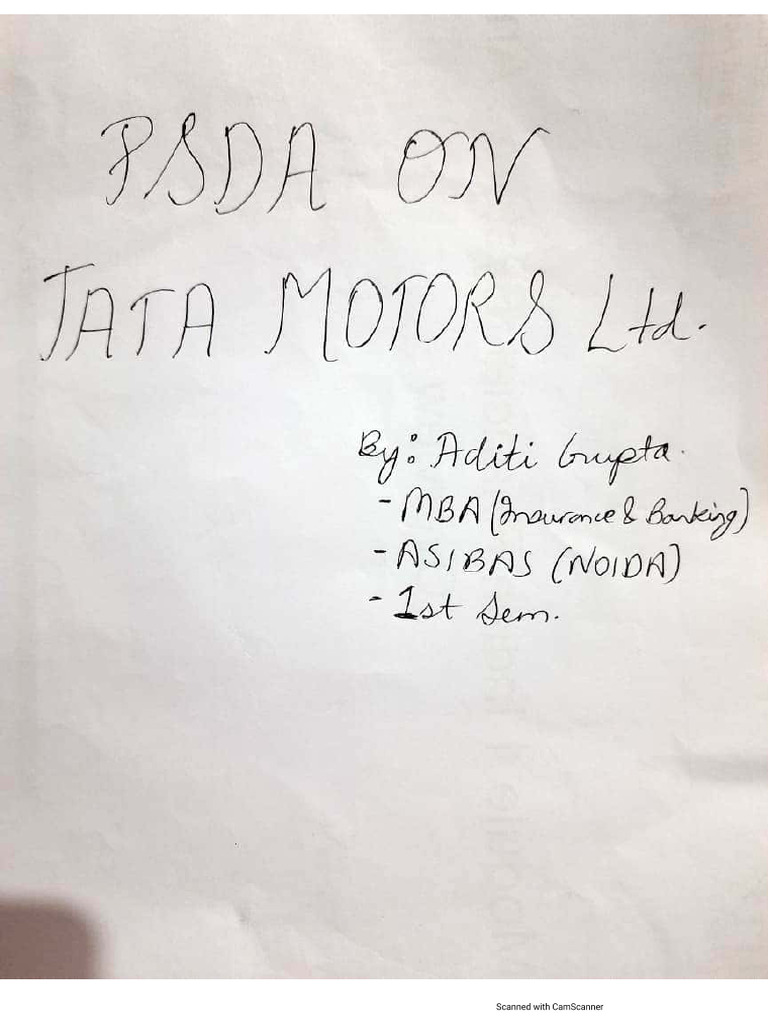 PSDA ON
TATA MOTORS Ltd.
By: Aditi Gupta.
- MBA (Insurance & Banking)
- ASIBAS (NOIDA)
- 1st Sem.
Scanned with CamScanner